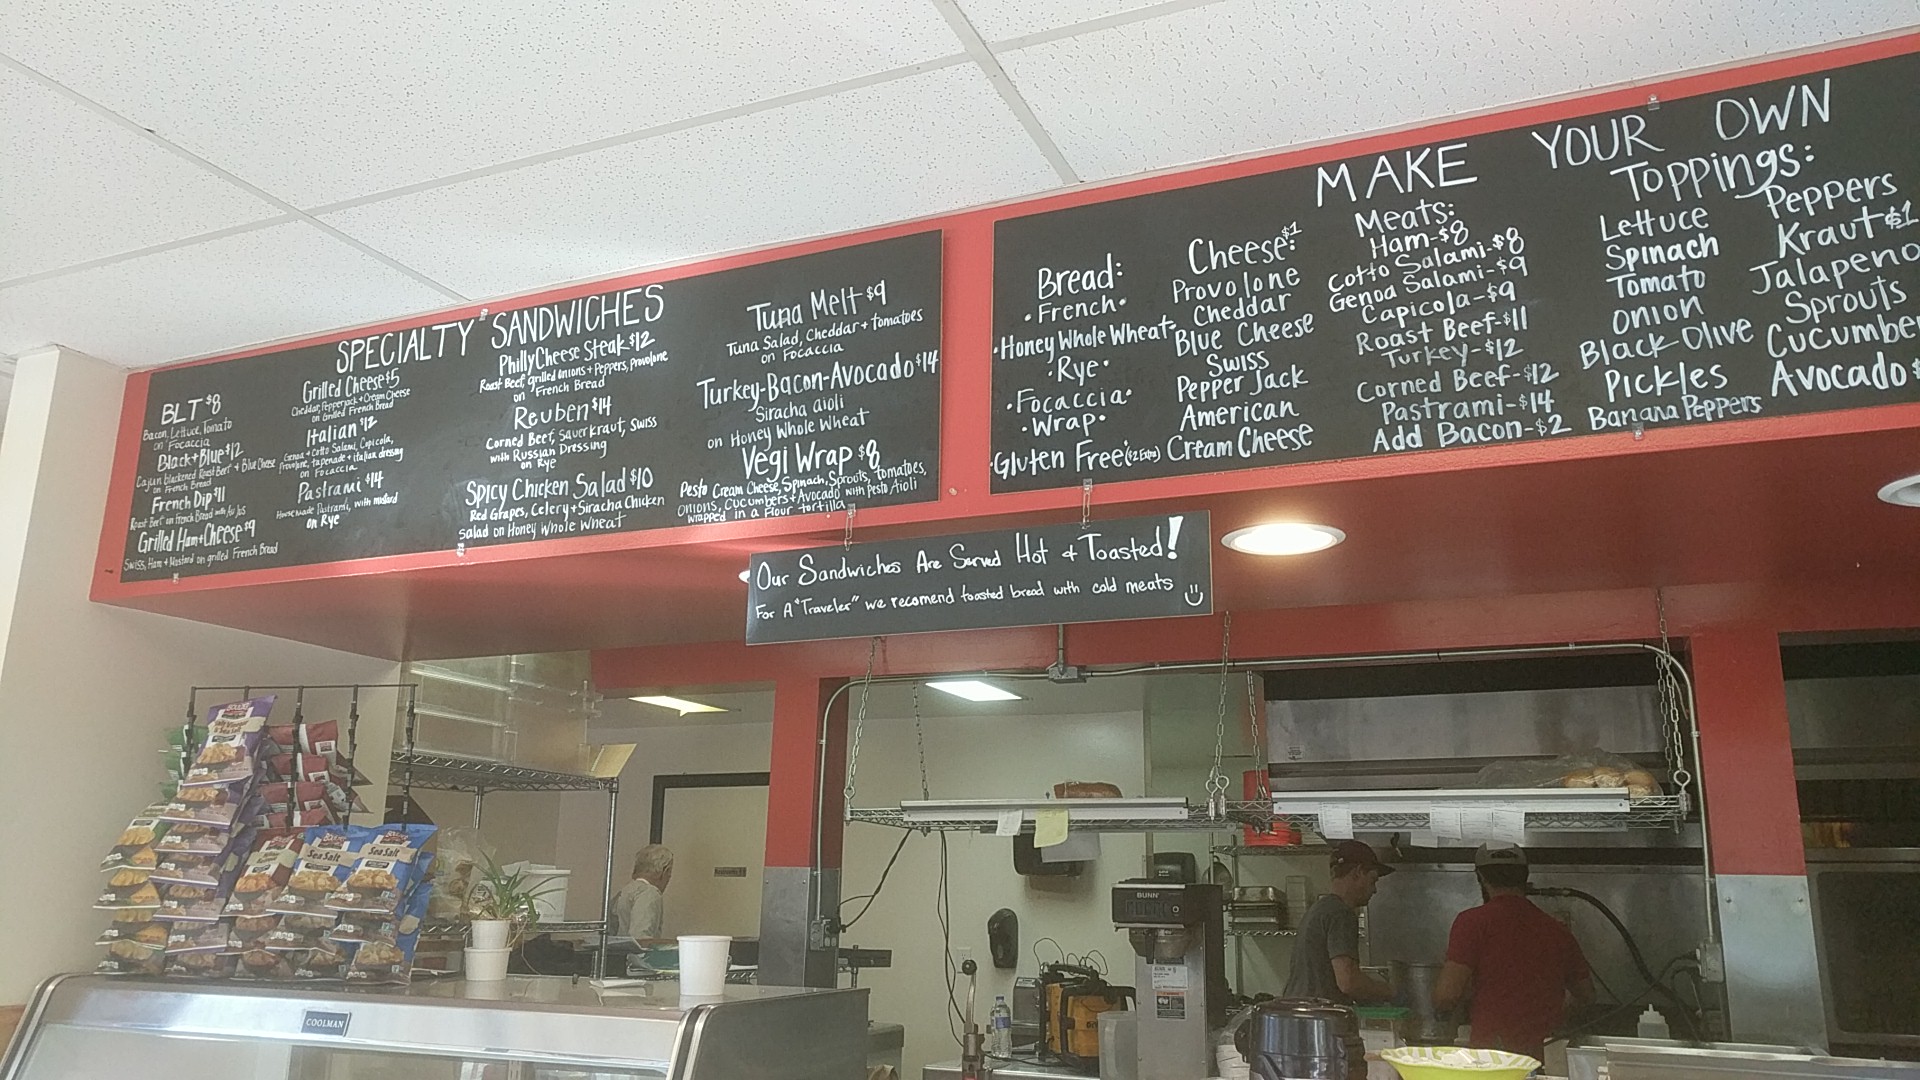 SPECIALTY SANDWICHES
BLT $8
Bacon, Lettuce, Tomato
on Focaccia
Black + Blue $12
Cajun blackened Roast Beef + Blue Cheese
on French Bread
French Dip $11
Roast Beef on French Bread with Au Jus
Grilled Ham + Cheese $9
Swiss, Ham + Mustard on grilled French Bread
Grilled Cheese $5
Cheddar, Pepperjack + Cream Cheese
on Grilled French Bread
Italian $12
Genoa + Cotto Salami, Capicola,
Provolone, tapenade + italian dressing
on Focaccia
Pastrami $14
House made Pastrami, with mustard
on Rye
Philly Cheese Steak $12
Roast Beef, grilled onions + Peppers, Provolone
on French Bread
Reuben $14
Corned Beef, Sauerkraut, Swiss
with Russian Dressing
on Rye
Spicy Chicken Salad $10
Red Grapes, Celery + Siracha Chicken
Salad on Honey Whole Wheat
Tuna Melt $9
Tuna Salad, Cheddar + Tomatoes
on Focaccia
Turkey-Bacon-Avocado $14
Siracha aioli
on Honey Whole Wheat
Vegi Wrap $8
Pesto Cream Cheese, Spinach, Sprouts, tomatoes,
onions, Cucumbers + Avocado with Pesto Aioli
wrapped in a Flour tortilla
MAKE YOUR OWN
Bread:
• French •
• Honey Whole Wheat •
• Rye •
• Focaccia •
• Wrap •
• Gluten Free ($2 Extra)
Cheese: $1
Provolone
Cheddar
Blue Cheese
Swiss
Pepper Jack
American
Cream Cheese
Meats:
Ham-$8
Cotto Salami-$8
Genoa Salami-$9
Capicola-$9
Roast Beef-$11
Turkey-$12
Corned Beef-$12
Pastrami-$14
Add Bacon-$2
Toppings:
Lettuce
Spinach
Tomato
Onion
Black Olive
Pickles
Banana Peppers
Peppers
Kraut $1
Jalapeno
Sprouts
Cucumber
Avocado $
Our Sandwiches Are Served Hot + Toasted!
For A "Traveler" we recomend toasted bread with cold meats
Sea Salt
Sea Salt
COOLMAN
BUNN